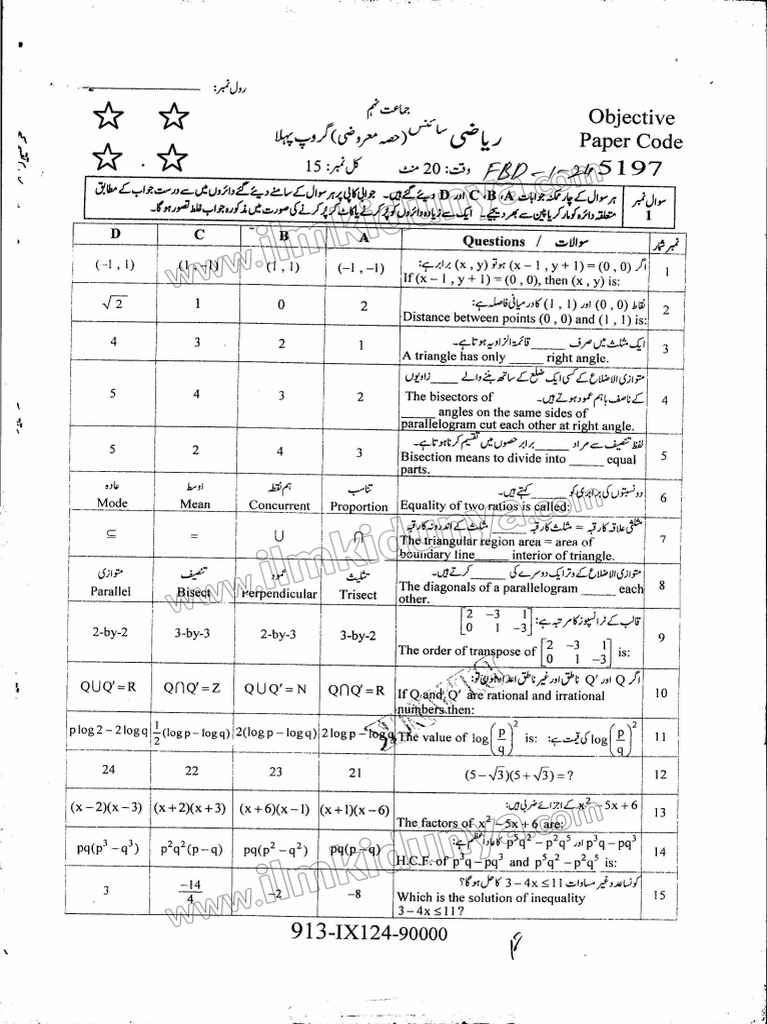 رول نمبر:
جماعت نہم
ریاضی سائنس (حصہ معروضی) گروپ پہلا
Objective
Paper Code
5197
وقت: 20 منٹ
کل نمبر: 15
FBD-1-24
سوال نمبر 1
ہر سوال کے چار ممکنہ جوابات A، B، C اور D دیئے گئے ہیں۔ جوابی کاپی پر ہر سوال کے سامنے دیئے گئے دائروں میں سے درست جواب کے مطابق
متعلقہ دائرہ کو مارکر یا پین سے بھر دیجیے۔ ایک سے زیادہ دائروں کو پُر کرنے یا کاٹ کر پُر کرنے کی صورت میں مذکورہ جواب غلط تصور ہوگا۔
D C B A Questions / سوالات نمبر شمار
اگر (x – 1 , y + 1) = (0 , 0) ہو تو (x , y) برابر ہے:
(–1 , 1) (1 , –1) (1 , 1) (–1 , –1) If (x – 1 , y + 1) = (0 , 0), then (x , y) is: 1
نقاط (0 , 0) اور (1 , 1) کا درمیانی فاصلہ ہے:
√2 1 0 2 Distance between points (0 , 0) and (1 , 1) is: 2
ایک مثلث میں صرف _____ قائمۃ الزاویہ ہوتا ہے۔
4 3 2 1 A triangle has only _____ right angle. 3
متوازی الاضلاع کے کسی ایک ضلع کے ساتھ بننے والے _____ زاویوں
کے ناصف باہم عمود ہوتے ہیں۔ The bisectors of
5 4 3 2 _____ angles on the same sides of 4
parallelogram cut each other at right angle.
لفظ تنصیف سے مراد _____ برابر حصوں میں تقسیم کرنا ہوتا ہے۔
5 2 4 3 Bisection means to divide into _____ equal 5
parts.
عادہ اوسط ہم نقطہ تناسب دو نسبتوں کی برابری کو _____ کہتے ہیں۔
Mode Mean Concurrent Proportion Equality of two ratios is called: 6
مثلثی علاقہ کا رقبہ = مثلث کا رقبہ _____ مثلث کے اندرونہ کا رقبہ
⊆ = ∪ ∩ The triangular region area = area of 7
boundary line_____ interior of triangle.
متوازی تنصیف عمود تثلیث متوازی الاضلاع کے وتر ایک دوسرے کی _____ کرتے ہیں۔
Parallel Bisect Perpendicular Trisect The diagonals of a parallelogram _____ each 8
other.
قالب [2 –3 1 / 0 1 –3] کے ٹرانسپوز کا مرتبہ ہے:
2-by-2 3-by-3 2-by-3 3-by-2 The order of transpose of [2 –3 1 / 0 1 –3] is: 9
اگر Q اور Q′ ناطق اور غیر ناطق اعداد ہوں تو:
Q∪Q′=R Q∩Q′=Z Q∪Q′=N Q∩Q′=R If Q and Q′ are rational and irrational 10
numbers then:
p log 2 – 2 log q 1/2(log p – log q) 2(log p – log q) 2 log p – log q The value of log(p/q)² is: log(p/q)² کی قیمت ہے: 11
24 22 23 21 (5 – √3)(5 + √3) = ? 12
x² – 5x + 6 کے اجزائے ضربی ہیں:
(x – 2)(x – 3) (x + 2)(x + 3) (x + 6)(x – 1) (x + 1)(x – 6) The factors of x² – 5x + 6 are: 13
p³q – pq³ اور p⁵q² – p²q⁵ کا عاد اعظم ہے:
pq(p³ – q³) p²q²(p – q) pq(p² – q²) pq(p – q) H.C.F. of p³q – pq³ and p⁵q² – p²q⁵ is: 14
کونسا عدد غیر مساوات 3 – 4x ≤ 11 کا حل ہوگا؟
3 –14/4 –2 –8 Which is the solution of inequality 15
3 – 4x ≤ 11?
913-IX124-90000
www.ilmkidunya.com
www.ilmkidunya.com
www.ilmkidunya.com